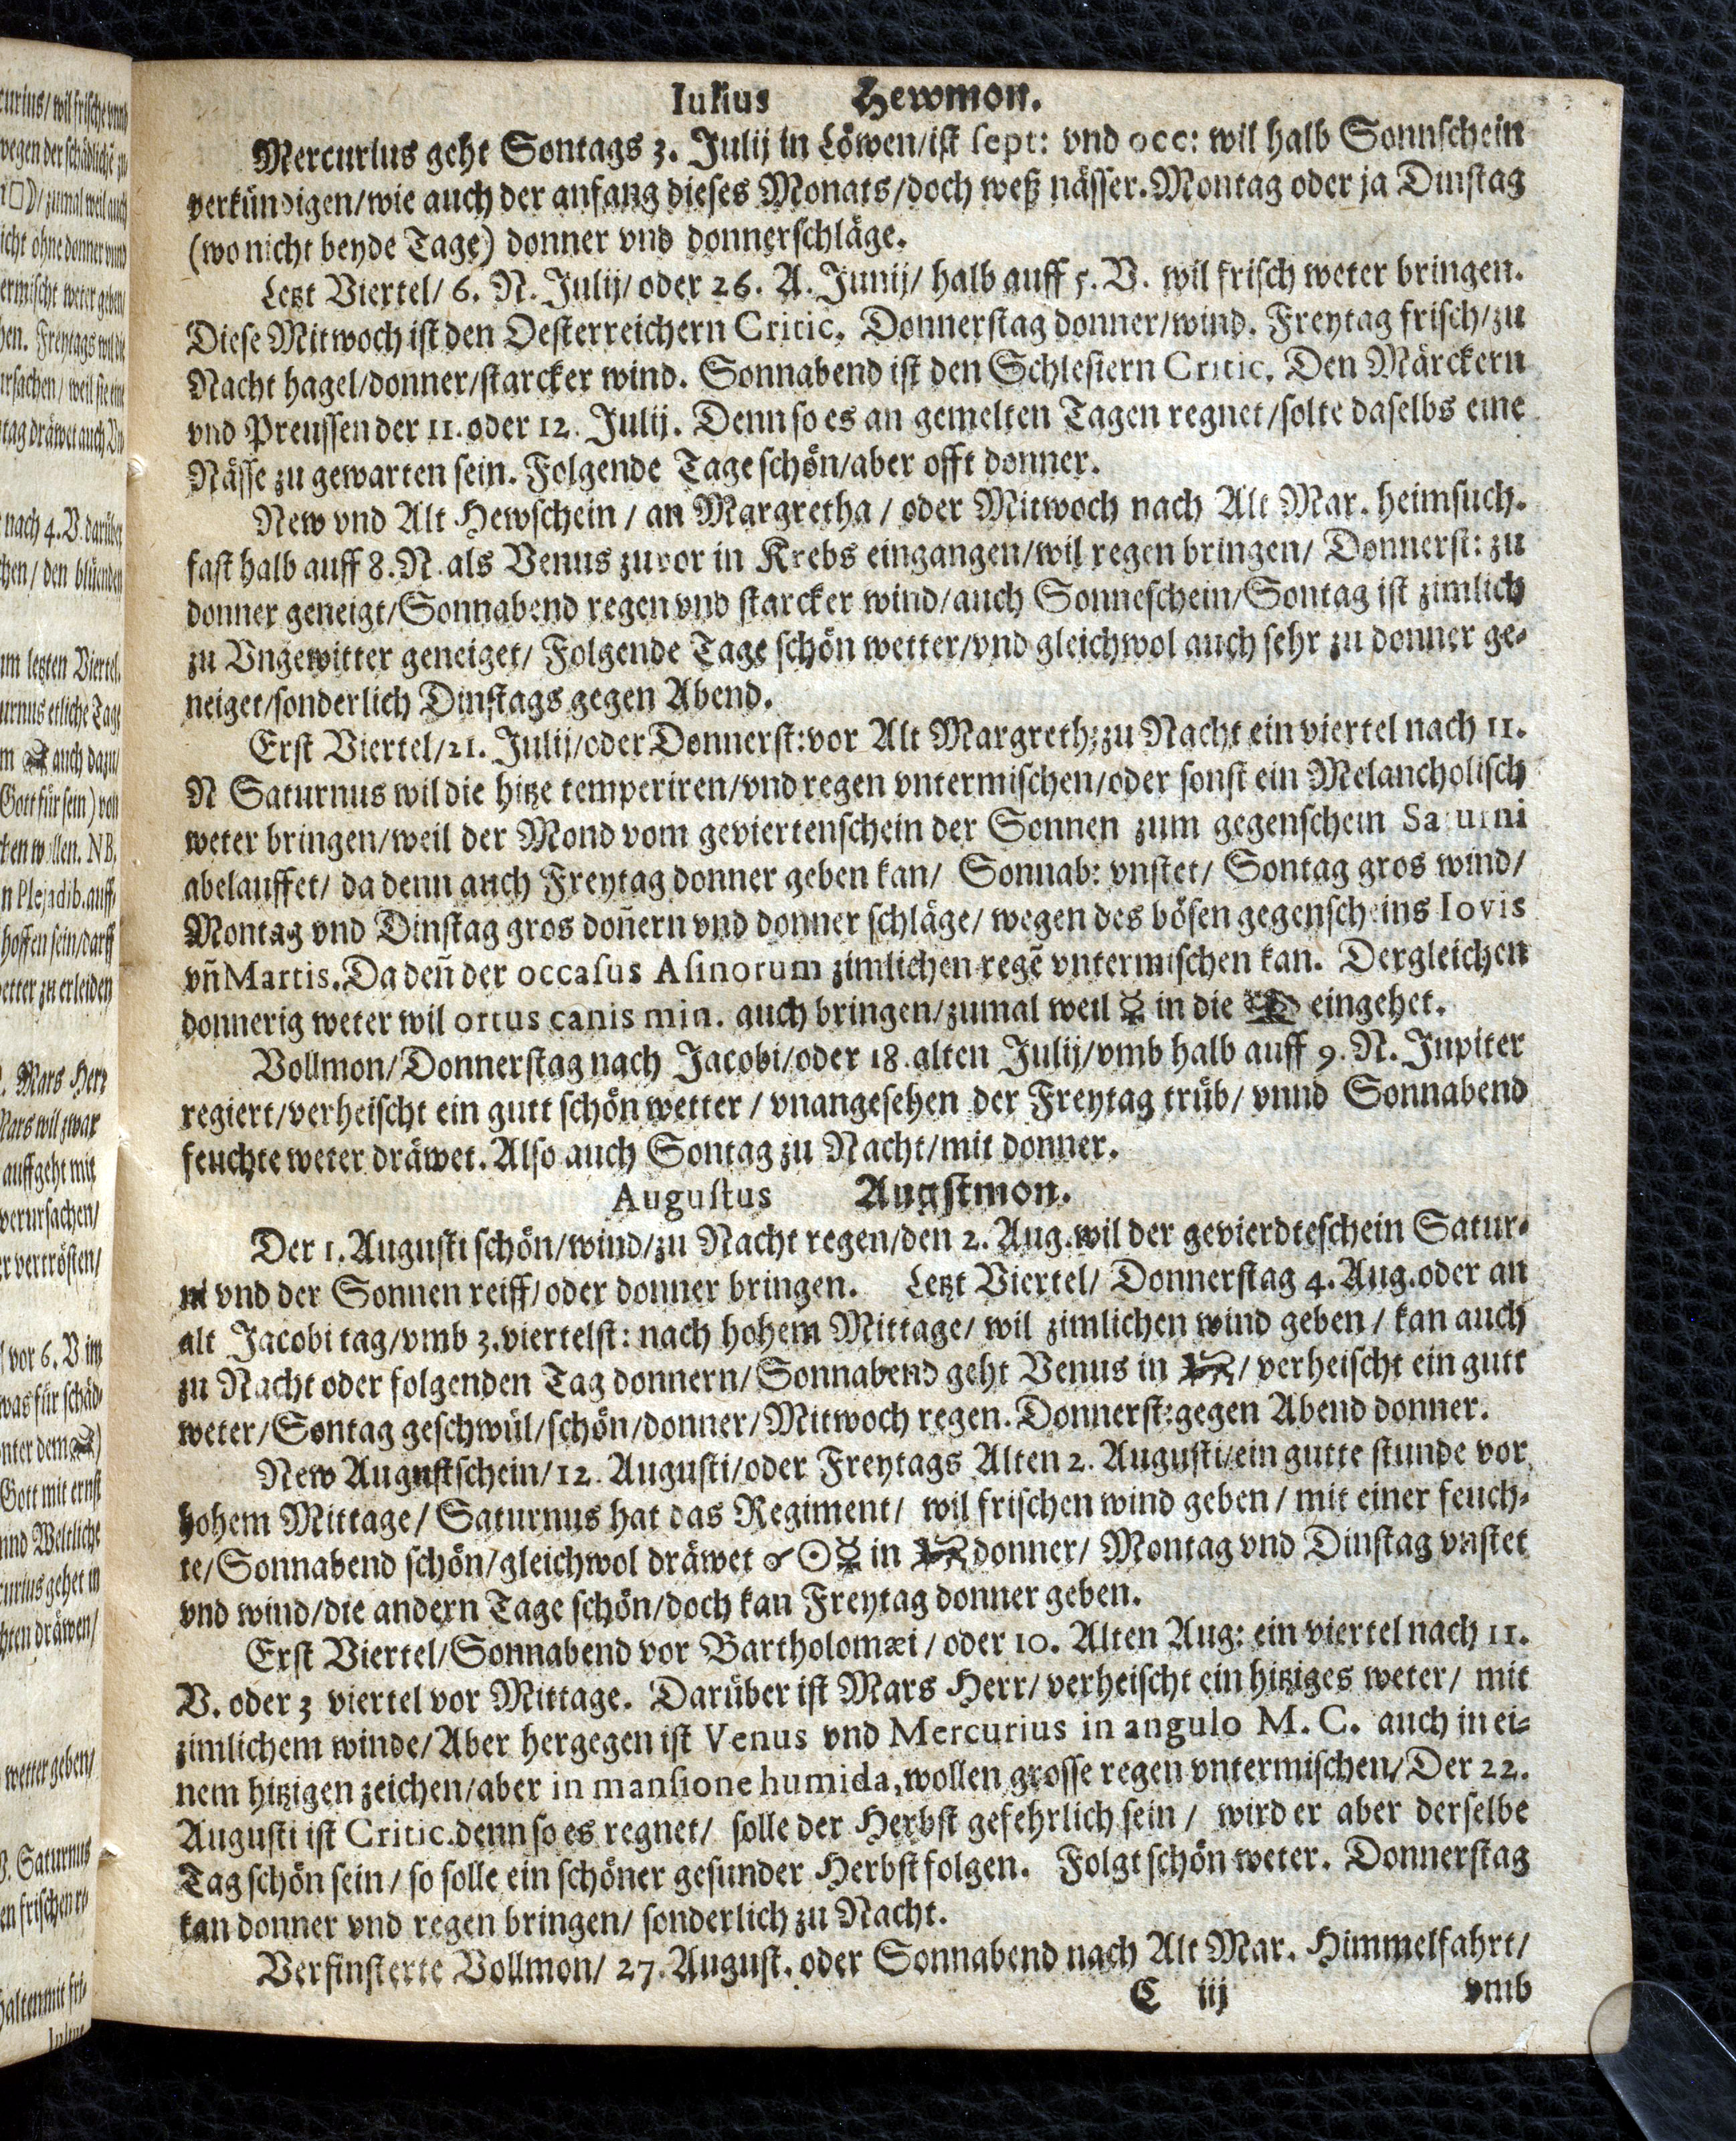 Iulius Hewmon.
Mercurius geht Sontags 3. Julij in Löwen/ist sept: vnd occ: wil halb Sonnschein
verkündigen/wie auch der anfang dieses Monats/doch weß nässer. Montag oder ja Dinstag
(wo nicht beyde Tage) donner vnd donnerschläge.
Letzt Viertel/ 6. N. Julij/ oder 26. A. Junij/ halb auff 5. V. wil frisch weter bringen.
Diese Mitwoch ist den Oesterreichern Critic. Donnerstag donner/wind. Freytag frisch/zu
Nacht hagel/donner/starcker wind. Sonnabend ist den Schlesiern Critic. Den Märckern
vnd Preussen der 11. oder 12. Julij. Denn so es an gemelten Tagen regnet/solte daselbs eine
Nässe zu gewarten sein. Folgende Tage schön/aber offt donner.
New vnd Alt Hewschein / an Margretha / oder Mitwoch nach Alt Mar. heimsuch.
fast halb auff 8. N. als Venus zuvor in Krebs eingangen/wil regen bringen/ Donnerst: zu
donner geneigt/Sonnabend regen vnd starcker wind/auch Sonneschein/Sontag ist zimlich
zu Vngewitter geneiget/ Folgende Tage schön wetter/vnd gleichwol auch sehr zu donner ge-
neiget/sonderlich Dinstags gegen Abend.
Erst Viertel/21. Julij/oder Donnerst: vor Alt Margreth: zu Nacht ein viertel nach 11.
N Saturnus wil die hitze temperiren/vnd regen vntermischen/oder sonst ein Melancholisch
weter bringen/weil der Mond vom geviertenschein der Sonnen zum gegenschein Saturni
abelauffet/ da denn auch Freytag donner geben kan/ Sonnab: vnstet/ Sontag gros wind/
Montag vnd Dinstag gros doñern vnd donner schläge/ wegen des bösen gegenscheins Iovis
vñ Martis. Da deñ der occasus Asinorum zimlichen regẽ vntermischen kan. Dergleichen
donnerig weter wil ortus canis min. auch bringen/zumal weil ☿ in die ♍ eingehet.
Vollmon/Donnerstag nach Jacobi/oder 18. alten Julij/vmb halb auff 9. N. Jupiter
regiert/verheischt ein gutt schön wetter / vnangesehen der Freytag trüb/ vnnd Sonnabend
feuchte weter dräwet. Also auch Sontag zu Nacht/mit donner.
Augustus Augstmon.
Der 1. Augusti schön/wind/zu Nacht regen/den 2. Aug. wil der gevierdteschein Satur-
ni vnd der Sonnen reiff/oder donner bringen. Letzt Viertel/ Donnerstag 4. Aug. oder an
alt Jacobi tag/vmb 3. viertelst: nach hohem Mittage/ wil zimlichen wind geben / kan auch
zu Nacht oder folgenden Tag donnern/Sonnabend geht Venus in ♌/ verheischt ein gutt
weter/Sontag geschwül/schön/donner/Mitwoch regen. Donnerst: gegen Abend donner.
New Augustschein/12. Augusti/oder Freytags Alten 2. Augusti/ein gutte stunde vor
hohem Mittage/ Saturnus hat das Regiment/ wil frischen wind geben / mit einer feuch-
te/Sonnabend schön/gleichwol dräwet ☌ ☉ ☿ in ♌ donner/ Montag vnd Dinstag vnstet
vnd wind/die andern Tage schön/doch kan Freytag donner geben.
Erst Viertel/Sonnabend vor Bartholomæi / oder 10. Alten Aug: ein viertel nach 11.
V. oder 3 viertel vor Mittage. Darüber ist Mars Herr/ verheischt ein hitziges weter/ mit
zimlichem winde/Aber hergegen ist Venus vnd Mercurius in angulo M. C. auch in ei-
nem hitzigen zeichen/aber in mansione humida, wollen grosse regen vntermischen/Der 22.
Augusti ist Critic. denn so es regnet/ solle der Herbst gefehrlich sein / wird er aber derselbe
Tag schön sein / so solle ein schöner gesunder Herbst folgen. Folgt schön weter. Donnerstag
kan donner vnd regen bringen/ sonderlich zu Nacht.
Verfinsterte Vollmon/ 27. August. oder Sonnabend nach Alt Mar. Himmelfahrt/
C iij vmb